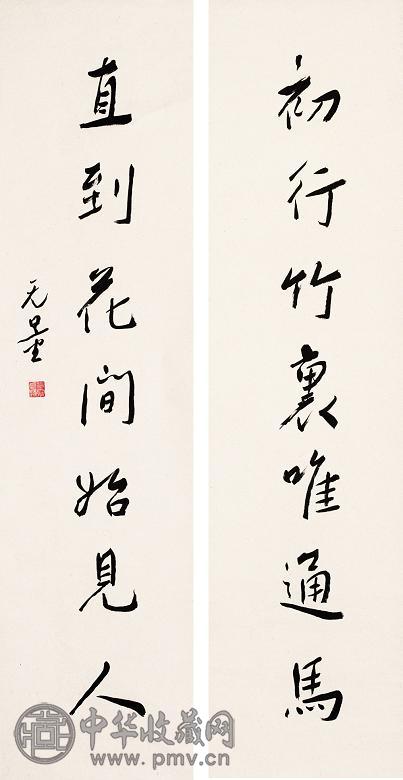 初行竹裏唯通馬
直到花間始見人
无量
中华收藏网
www.pmv.cn